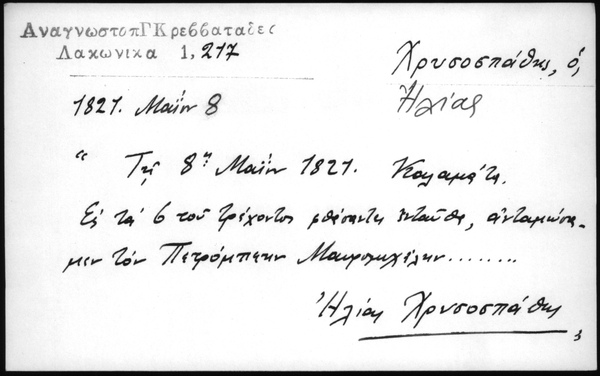 ΑναγνωστοπΓΚρεββαταδες
Λακωνικα 1, 217
Χρυσοσπάθης, ὁ,
Ἠλίας
1821. Μαΐου 8
“ Τῇ 8ῃ Μαΐου 1821. Καλαμάτα.
Εἰς τὰς 6 τοῦ τρέχοντος φθάσαντες ἐνταῦθα, ἀνταμώσα-
μεν τὸν Πετρόμπεην Μαυρομιχάλην........
Ἠλίας Χρυσοσπάθης